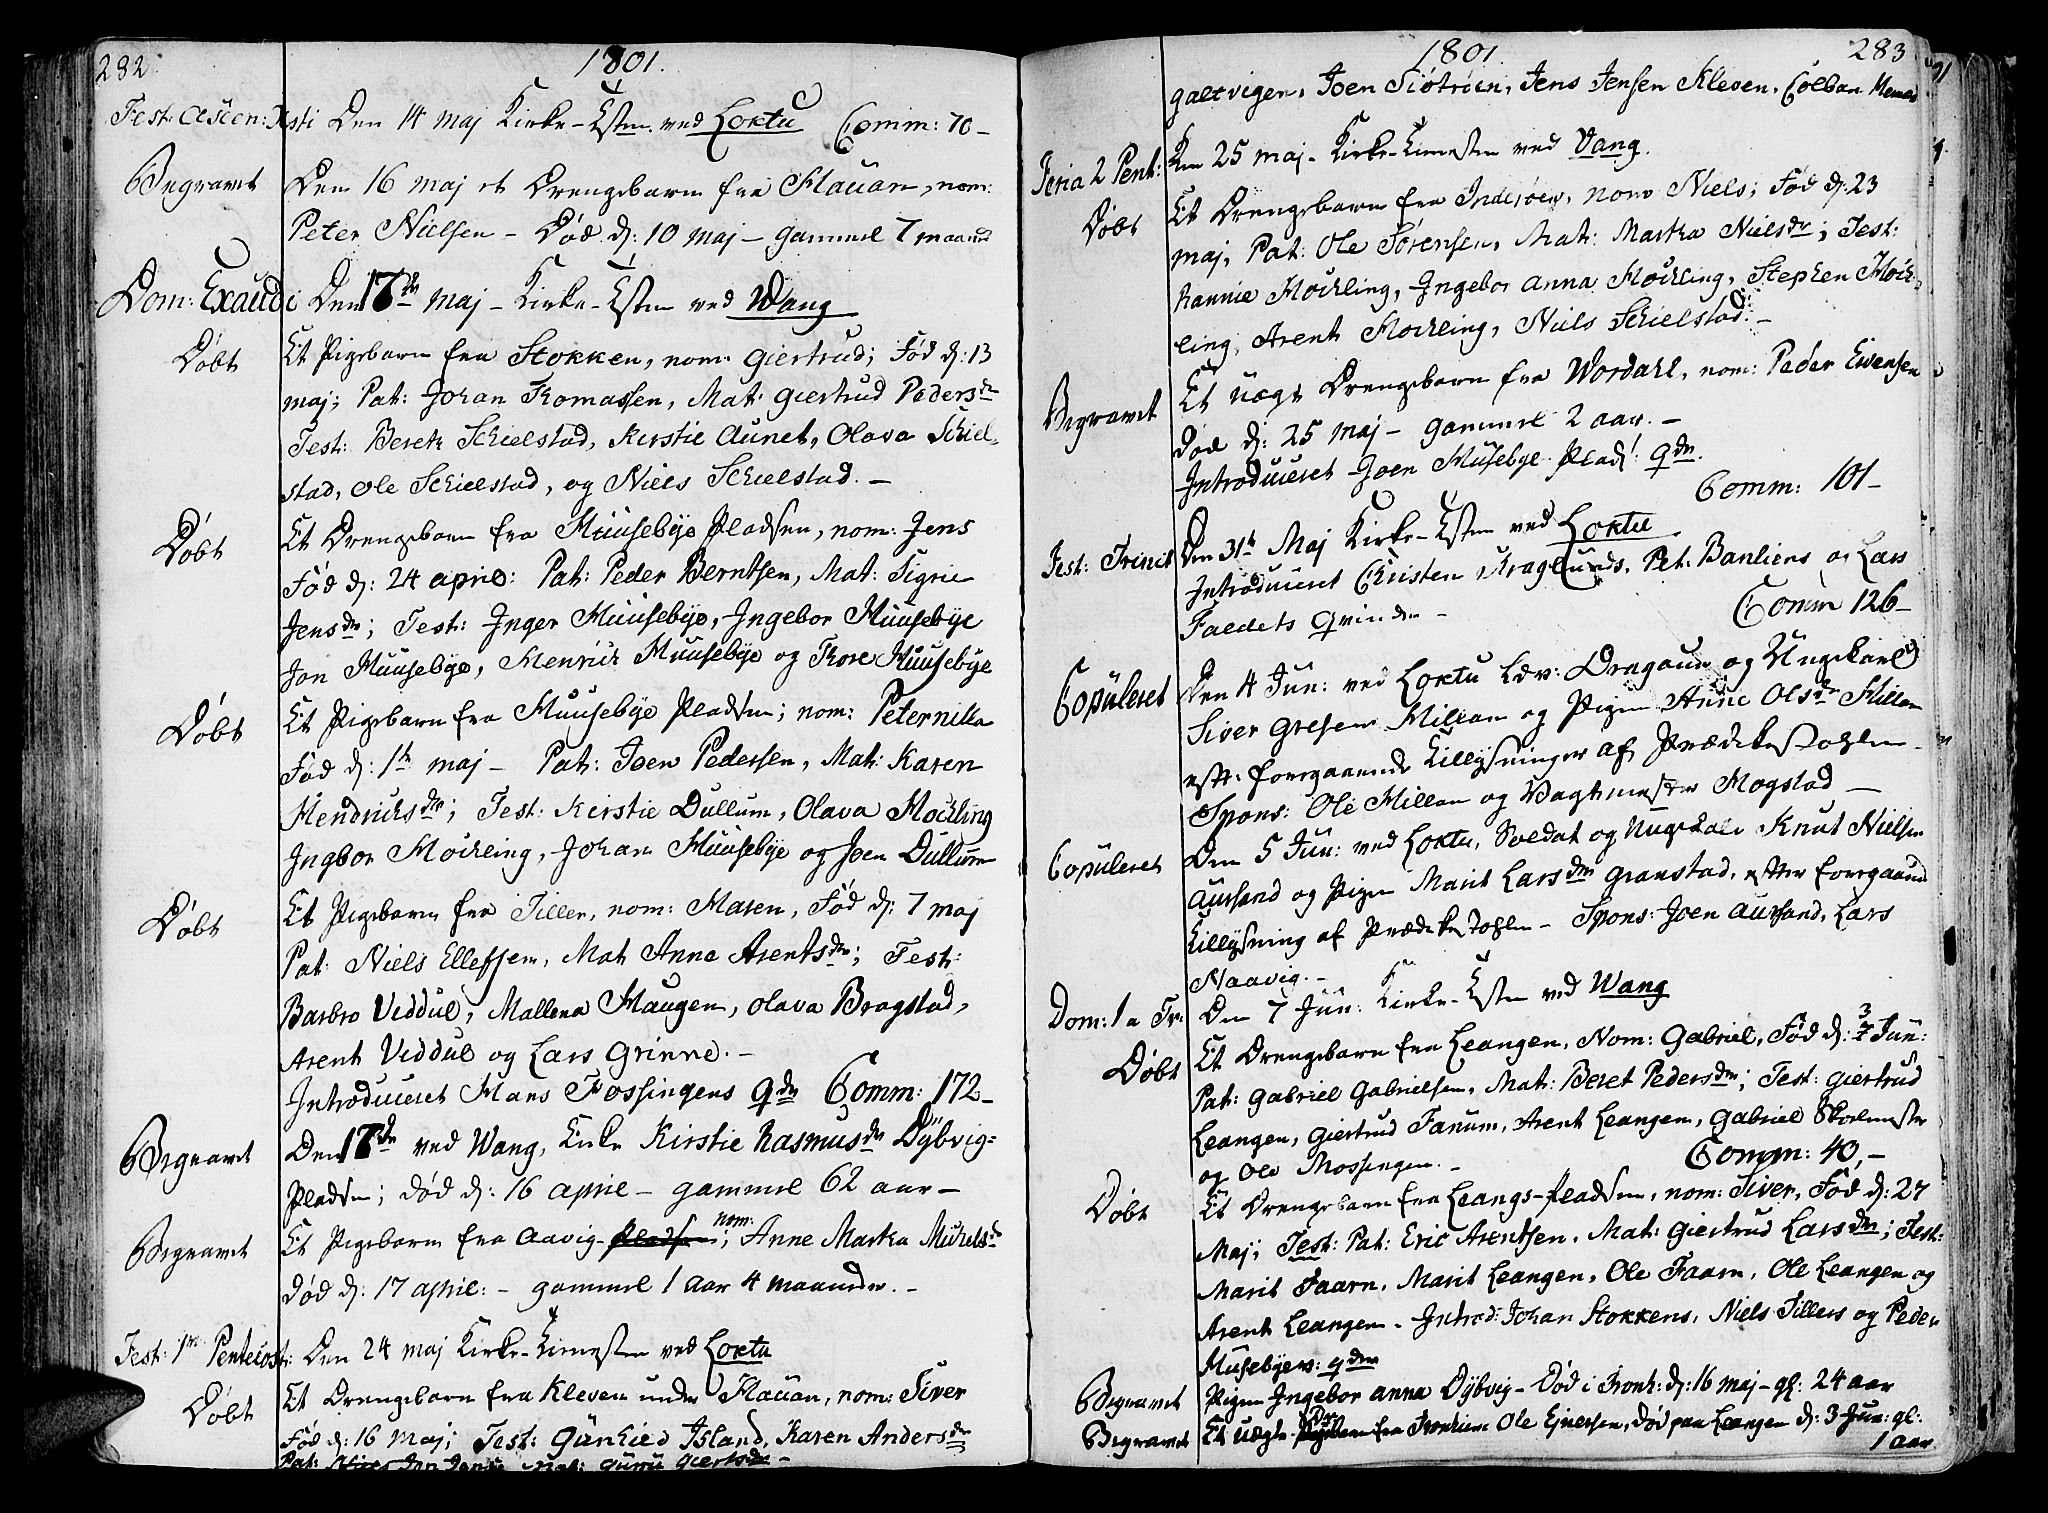 282.
1801.
Fest: Ascen: Xsti Den 14 Maj Kirke-Esten ved Loxtu Comm: 70-
Begravet Den 16 Maj et Drengebarn fra Flauan, nom:
Peter Nielsen - Død d: 10 Maj - gammel 7 maaned
Dom: Exaudi Den 17de Maj - Kirke-Esten ved Wang
Døbt Et Pigebarn fra Stokken, nom: Giertrud; Fød d: 13
Maj; Pat: Johan Thomassen, Mat: Giertrud Pedersdr
Test: Bereth Schielstad, Kirstie Aunet, Olava Schiel,
stad, Ole Schielstad, og Niels Schielstad. -
Døbt Et Drengebarn fra Muusebye Pladsen, nom: Jens
Fød d: 24 April: Pat: Peder Berntsen, Mat: Sigrie
Jensdr; Test: Inger Muusebye, Ingebor Muusebye
Jon Muusebye, Henrich Muusebye og Thore Muusebye
Døbt Et Pigebarn fra Muusebye Pladsen; nom: Peternilla
Fød d: 1te Maj - Pat: Joen Pedersen, Mat: Karen
Hendrichsdr; Test: Kirstie Dullum, Olava Mochling
Ingbor Mochling, Johan Muusebye og Joen Dullum
Døbt Et Pigebarn fra Tiller, nom: Maren, Fød d: 7 Maj
Pat: Niels Ellefsen, Mat: Anne Arentsdr; Test:
Barbro Viddul, Mallena Haugen, Olava Bragstad,
Arent Viddul og Lars Grinne. -
Introduceret Hans Fossingens Qde Comm: 172-
Begravet Den 17de ved Wang, Enke Kirstie Rasmusdr Dybvig=
Pladsen; død d: 16 April - gammel 62 aar -
Begravet Et Pigebarn fra Aavig-Pladsen nom:; Anne Martha Michelsdr
Død d: 17 April: - gammel 1 aar 4 maaneder. -
Fest: 1m Pentecost: Den 24 Maj Kirke-Tienesten ved Loxtu
Døbt Et Drengebarn fra Kleven under Flauan, nom: Siver
Fød d: 16 Maj; Test: Gunhied Island, Karen Andersdr
Pat: Jon Jensen Mat: Guru Giertsdr -
1801.
283
Galtvigen, Joen Siøtrøen, Jens Jensen Kleven, Colban
Feria 2 Pent: Den 25 Maj - Kirke-Tienesten ved Vang.
Døbt Et Drengebarn fra Inderøen, nom Niels; Fød d: 23
Maj, Pat: Ole Sørensen, Mat: Martha Nielsdr; Test:
Hannie Mochling, Ingebor Anna Mochling, Stephen Moch-
ling, Arent Mochling, Niels Schielstad. -
Begravet Et uægte Drengebarn fra Wordahl, nom: Peder Evensen
Død d: 25 Maj - gammel 2 aar. -
Introduceret Joen Musebye Plads: Qde.
Comm: 101-
Fest: Trinit: Den 31te Maj Kirke-Esten ved Loxtu
Introduceret Christen Kraglunds, Pet: Banliens og Lars
Faldets Qvinder - Comm 126-
Copuleret Den 4 Jun: ved Loxtu Ldv: Dragoun og Ungekarl
Siver Gresen Millan og Pigen Anne Olsdr Millan
eft: foregaaende Tillysninger af Prædikestohlen
Spons: Ole Millan og Vagtmester Mogstad -
Copuleret Den 5 Jun: ved Loxtu, Soldat og Ungekarl Knut Nielsen
Aursand og Pigen Marit Larsdr Granstad, efter foregaaende
Tillysning af Prædikestohlen - Spons: Joen Aursand, Lars
Naavig. -
Dom: 1 a Tr: Den 7 Jun: Kirke-Esten ved Wang
Døbt Et Drengebarn fra Leangen, Nom: Gabriel, Fød d: 3 Jun:
Pat: Gabriel Gabrielsen, Mat: Beret Pedersdr; Test: Giertrud
Leangen, Giertrud Fanum, Arent Leangen, Gabriel Skolemester
og Ole Mossingen. - Comm: 40,-
Døbt Et Drengebarn fra Leangs-Pladsen, nom: Siver, Fød d: 27
Maj; Test: Pat: Eric Arentsen, Mat: Giertrud Larsdr; Test:
Marit Faarn, Marit Leangen, Ole Faarn, Ole Leangen og
Arent Leangen - Introd: Johan Stokkens, Niels Tillers og Peder
Musebyes: qder
Begravet Pigen Ingebor Anna Dybvig - Død i Tronh: d: 16 Maj - gl: 24 aar
Begravet Et uægte Drengebarn fra Tronhiem Ole Ejnersen, død paa Leangen d: 3 Jun: gl:
1 aar.